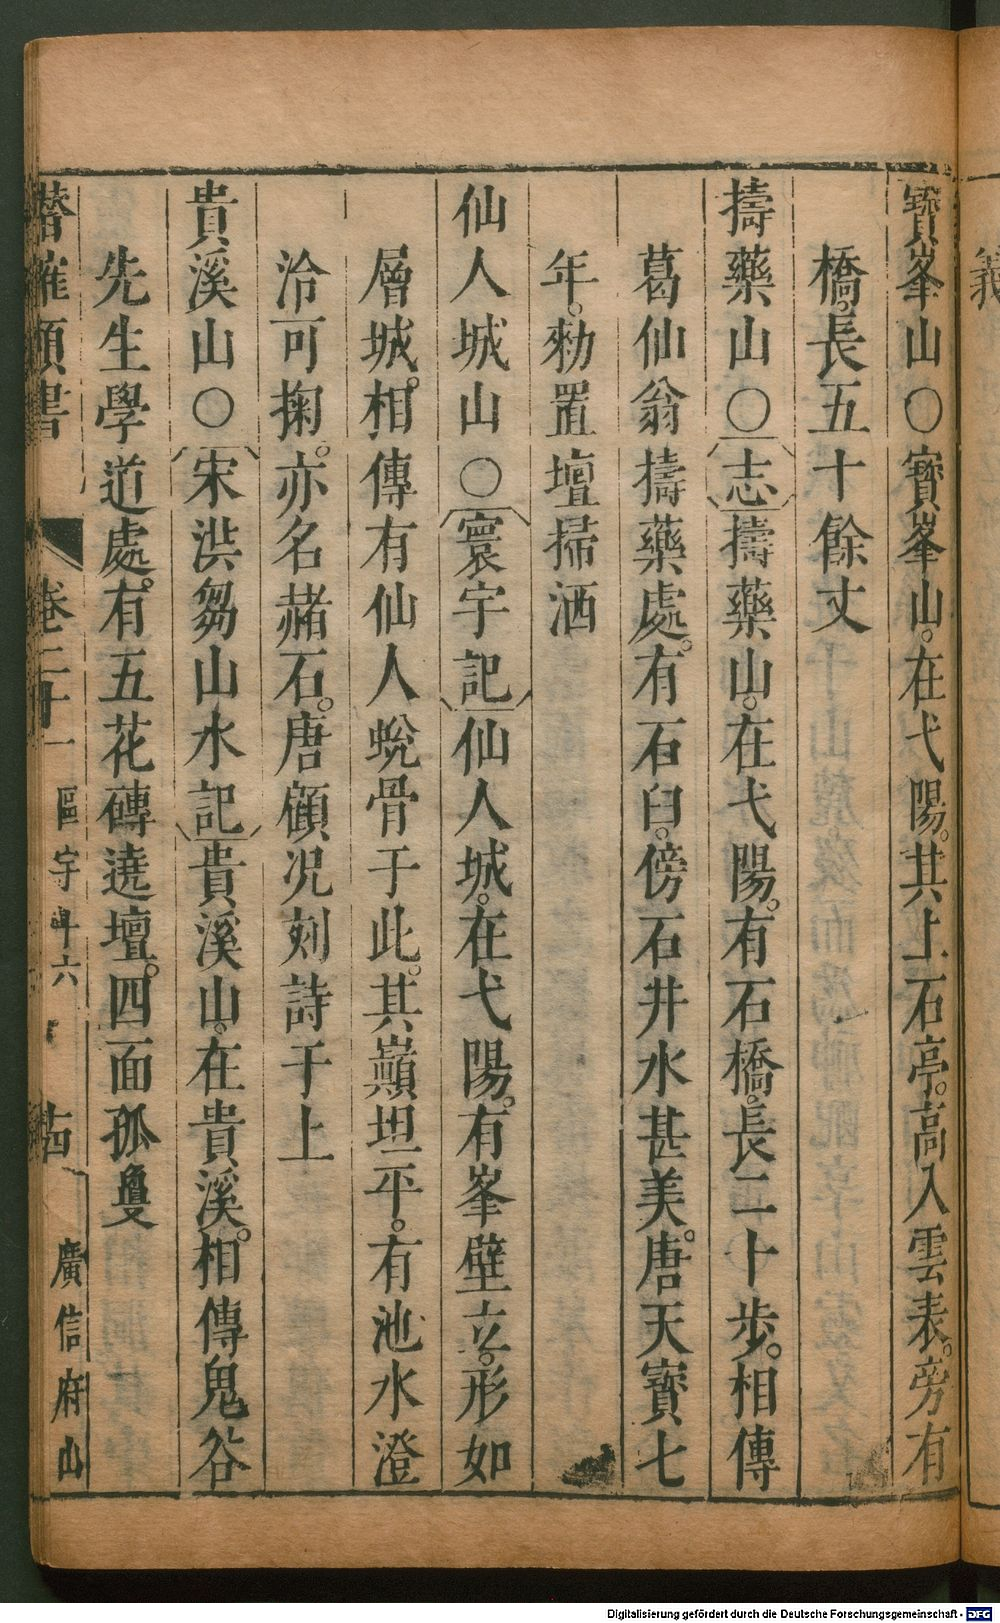 寶峯山○寶峯山。在弋陽。其上石亭。高入雲表。旁有
橋。長五十餘丈
擣藥山○志擣藥山。在弋陽。有石橋。長二十步。相傳
葛仙翁擣藥處。有石臼。傍石井水甚美。唐天寶七
年。勑置壇掃洒
仙人城山○寰宇記仙人城。在弋陽。有峯壁立。形如
層城。相傳有仙人蛻骨于此。其巔坦平。有池水澄
泠可掬。亦名赭石。唐顧况刻詩于上
貴溪山○宋洪芻山水記貴溪山。在貴溪。相傳鬼谷
先生學道處。有五花磚遶壇。四面孤敻
潛確類書 卷二十一 區宇 六 廣信府山
Digitalisierung gefördert durch die Deutsche Forschungsgemeinschaft - DFG